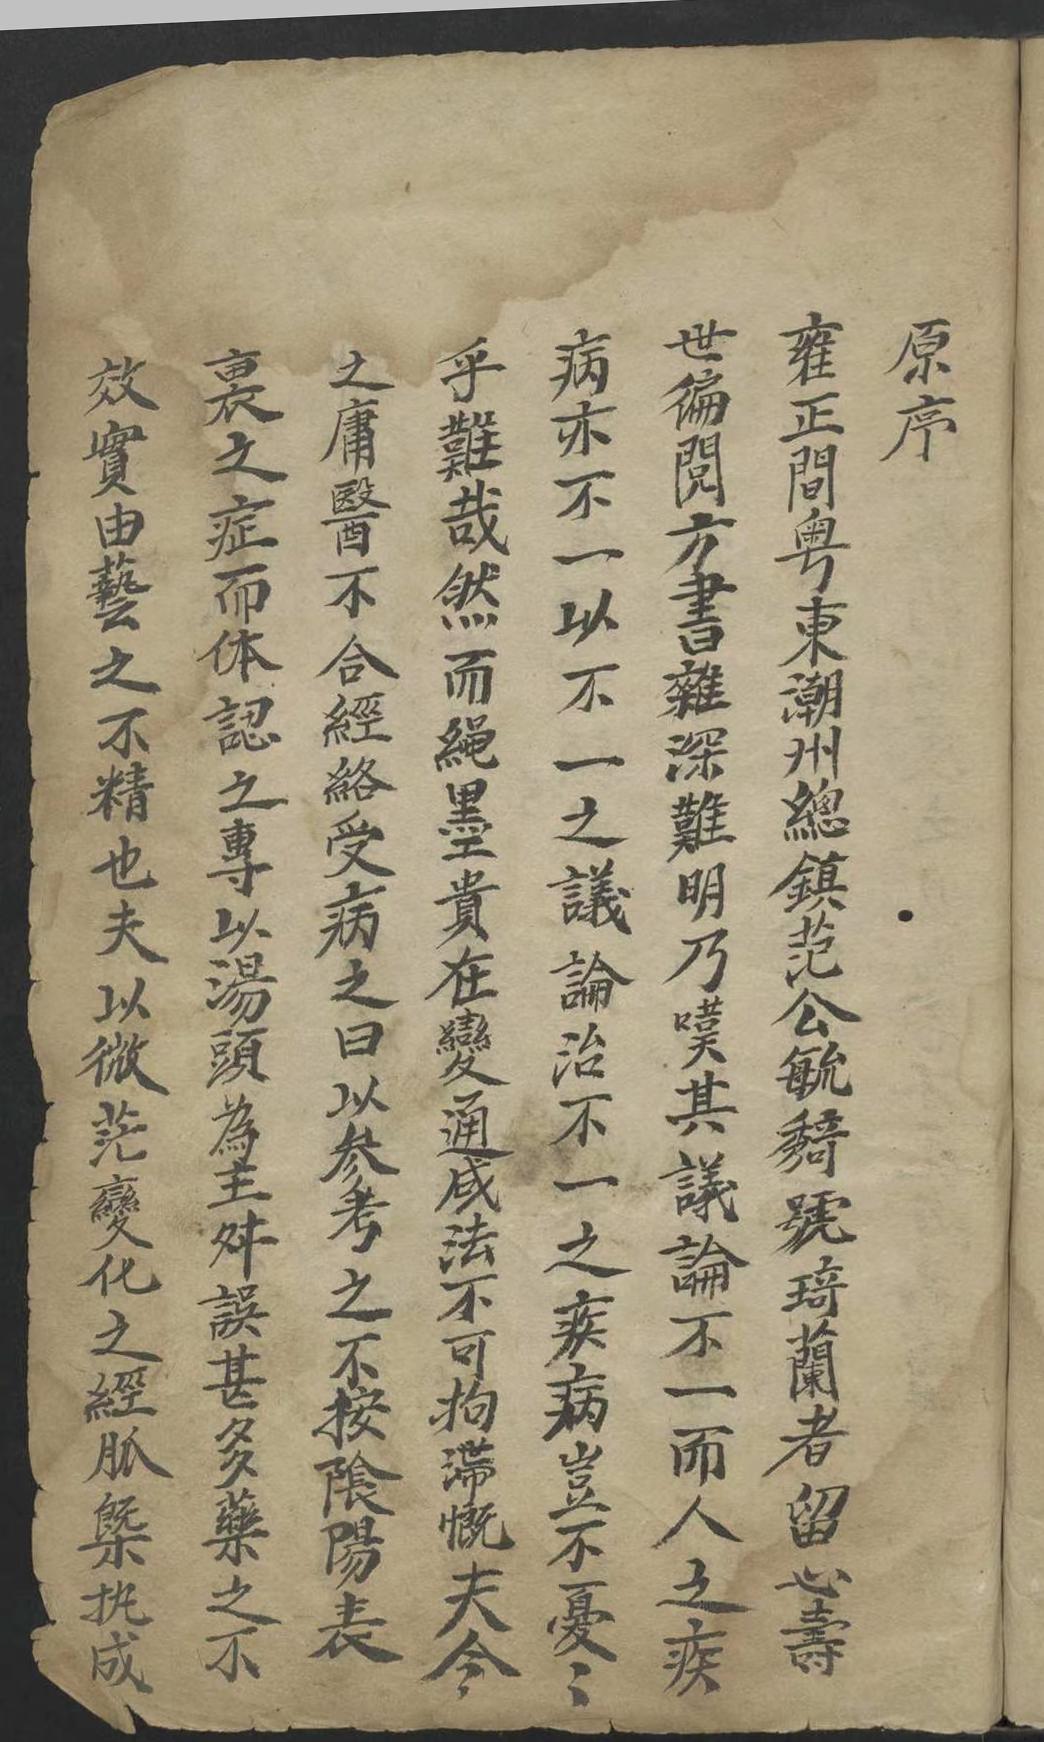 原序
雍正間粵東潮州總鎮范公毓𬴊號琦蘭者留心壽
世徧閱方書雜深難明乃嘆其議論不一而人之疾
病亦不一以不一之議論治不一之疾病豈不憂〻
乎難哉然而繩墨貴在變通咸法不可拘滯慨夫今
之庸醫不合經絡受病之曰以參考之不按陰陽表
裏之症而体認之專以湯頭為主舛誤甚多藥之不
效實由藝之不精也夫以微茫變化之經脈槩执成